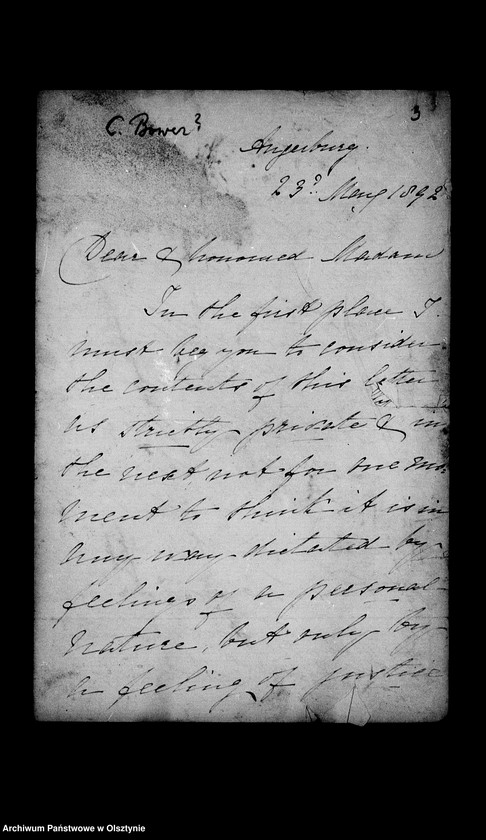 3
C. Bower?
Angerburg.
23? May 1892
Dear & honoured Madam
In the first place I
must beg you to consider
the contents of this letter
as strictly private & in
the next not for one mo
ment to think it is in
any way dictated by
feelings of a personal
nature, but only by
a feeling of justice
Archiwum Państwowe w Olsztynie